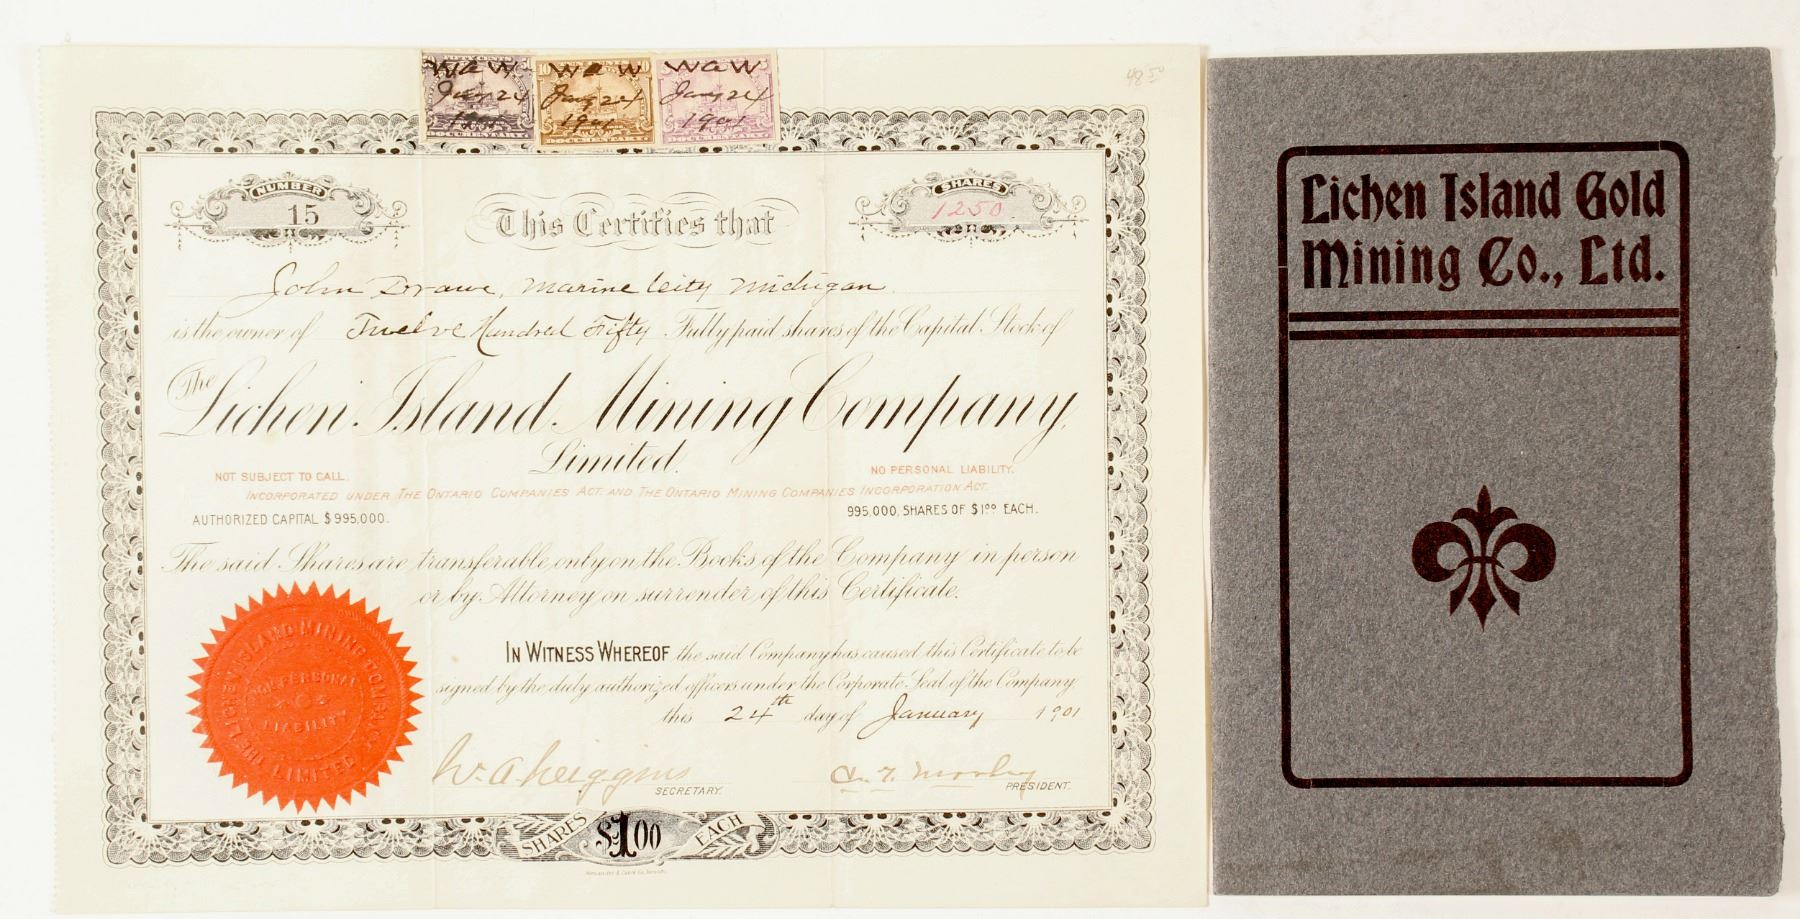 48 50
W a W
Jany 24
1901
DOCUMENTARY
10
W a W
Jany 24
1901
DOCUMENTARY
W a W
Jany 24
1901
DOCUMENTARY
NUMBER
15
This Certifies that
SHARES
1250
John Drawe, Marine City Michigan
is the owner of Twelve Hundred Fifty Fully paid shares of the Capital Stock of
The Lichen Island Mining Company,
Limited.
NOT SUBJECT TO CALL.
NO PERSONAL LIABILITY.
INCORPORATED UNDER THE ONTARIO COMPANIES ACT AND THE ONTARIO MINING COMPANIES INCORPORATION ACT.
AUTHORIZED CAPITAL $995,000.
995,000, SHARES OF $1.00 EACH.
The said Shares are transferable only on the Books of the Company in person
or by Attorney on surrender of this Certificate.
IN WITNESS WHEREOF the said Company has caused this Certificate to be
signed by the duly authorized officers under the Corporate Seal of the Company
this 24th day of January 1901
THE LICHEN ISLAND MINING COMPANY
LIMITED
NO PERSONAL
LIABILITY
SECRETARY.
PRESIDENT.
SHARES $1.00 EACH
Lichen Island Gold
Mining Co., Ltd.